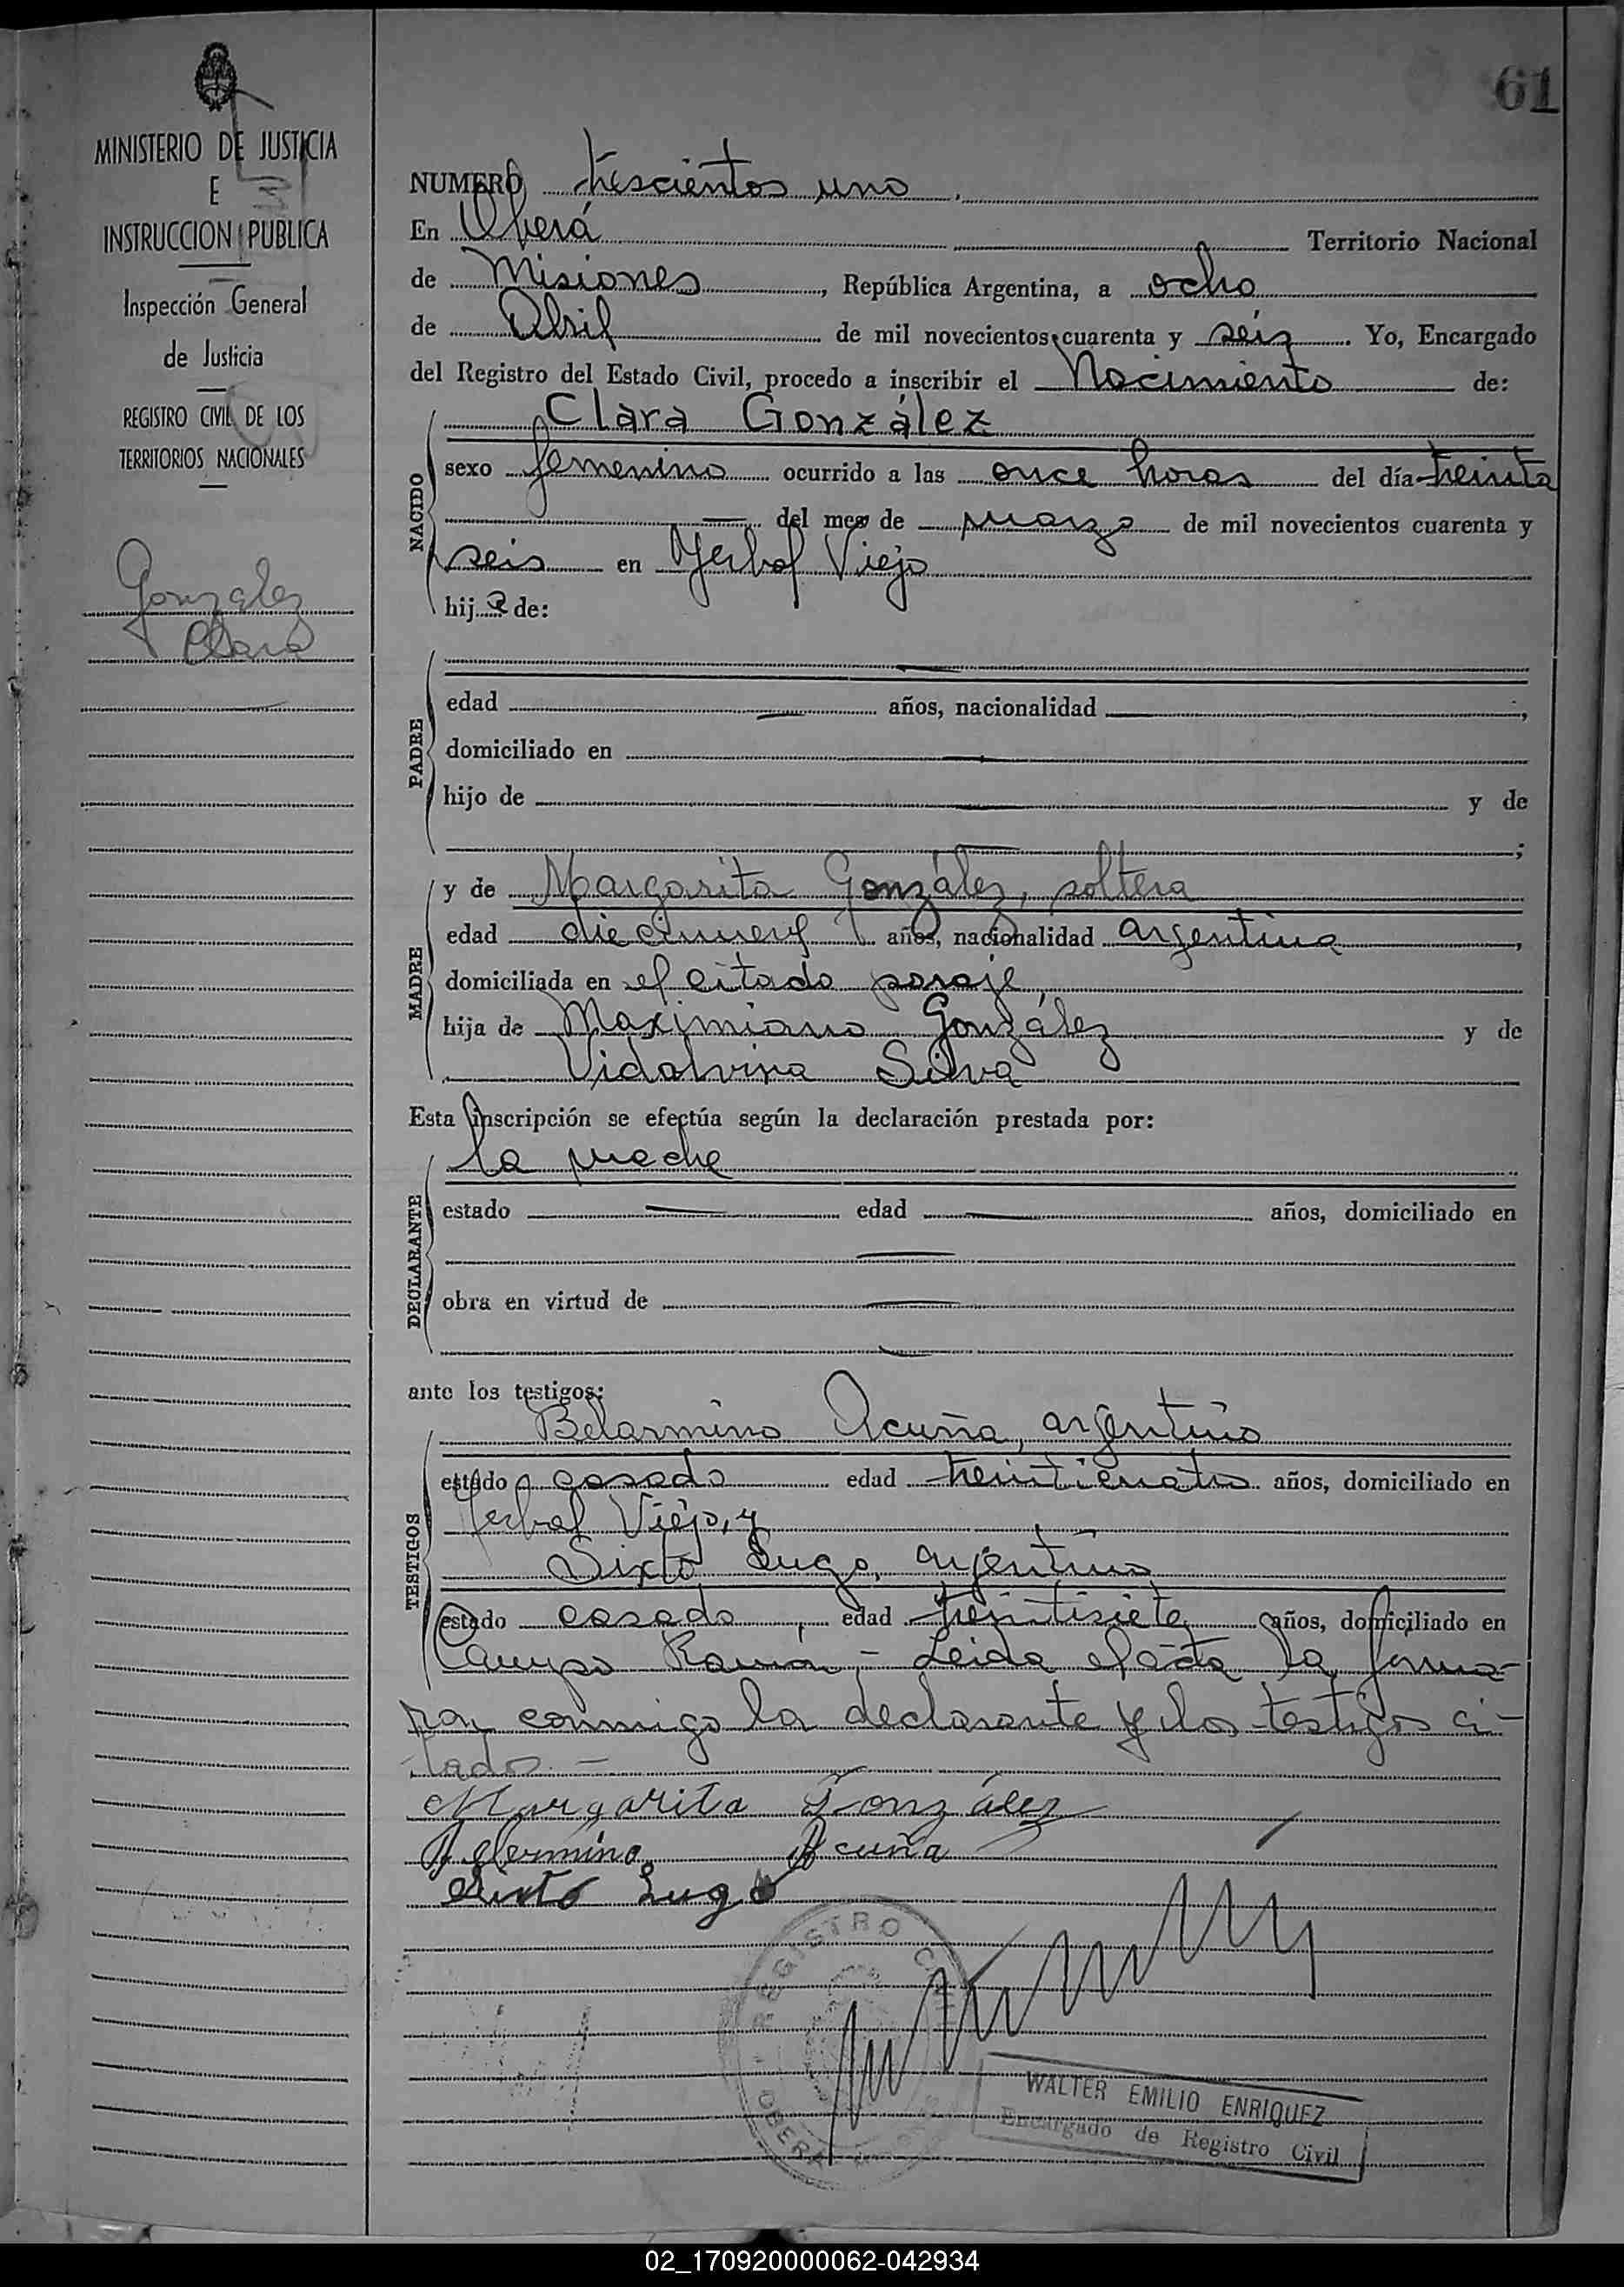 61
MINISTERIO DE JUSTICIA
E
INSTRUCCION PUBLICA
Inspección General
de Justicia
REGISTRO CIVIL DE LOS
TERRITORIOS NACIONALES
Gonzalez
Clara
NUMERO trescientos uno.
En Oberá Territorio Nacional
de Misiones, República Argentina, a ocho
de Abril de mil novecientos cuarenta y seis. Yo, Encargado
del Registro del Estado Civil, procedo a inscribir el Nacimiento de:
Clara González
NACIDO
sexo femenino ocurrido a las once horas del día treinta
— del mes de marzo de mil novecientos cuarenta y
seis en Yerbal Viejo
hija de:
PADRE
—
edad — años, nacionalidad —,
domiciliado en —
hijo de — y de
—;
MADRE
y de Margarita González, soltera
edad diecinueve años, nacionalidad argentina,
domiciliada en el citado paraje
hija de Maximiano González y de
Vidalvina Silva
Esta inscripción se efectúa según la declaración prestada por:
DECLARANTE
la madre
estado — edad — años, domiciliado en
—
obra en virtud de —
—
ante los testigos:
TESTIGOS
Belarmino Acuña, argentino
estado casado edad treinticuatro años, domiciliado en
Yerbal Viejo, y
Sixto Lugo, argentino
estado casado, edad treintisiete años, domiciliado en
Campo Ramón.- Leida el acta la firma-
ron conmigo la declarante y los testigos ci-
tados.-
Margarita González
Belermino Acuña
Sixto Lugo
REGISTRO CIVIL
OBERA
WALTER EMILIO ENRIQUEZ
Encargado de Registro Civil
02_170920000062-042934